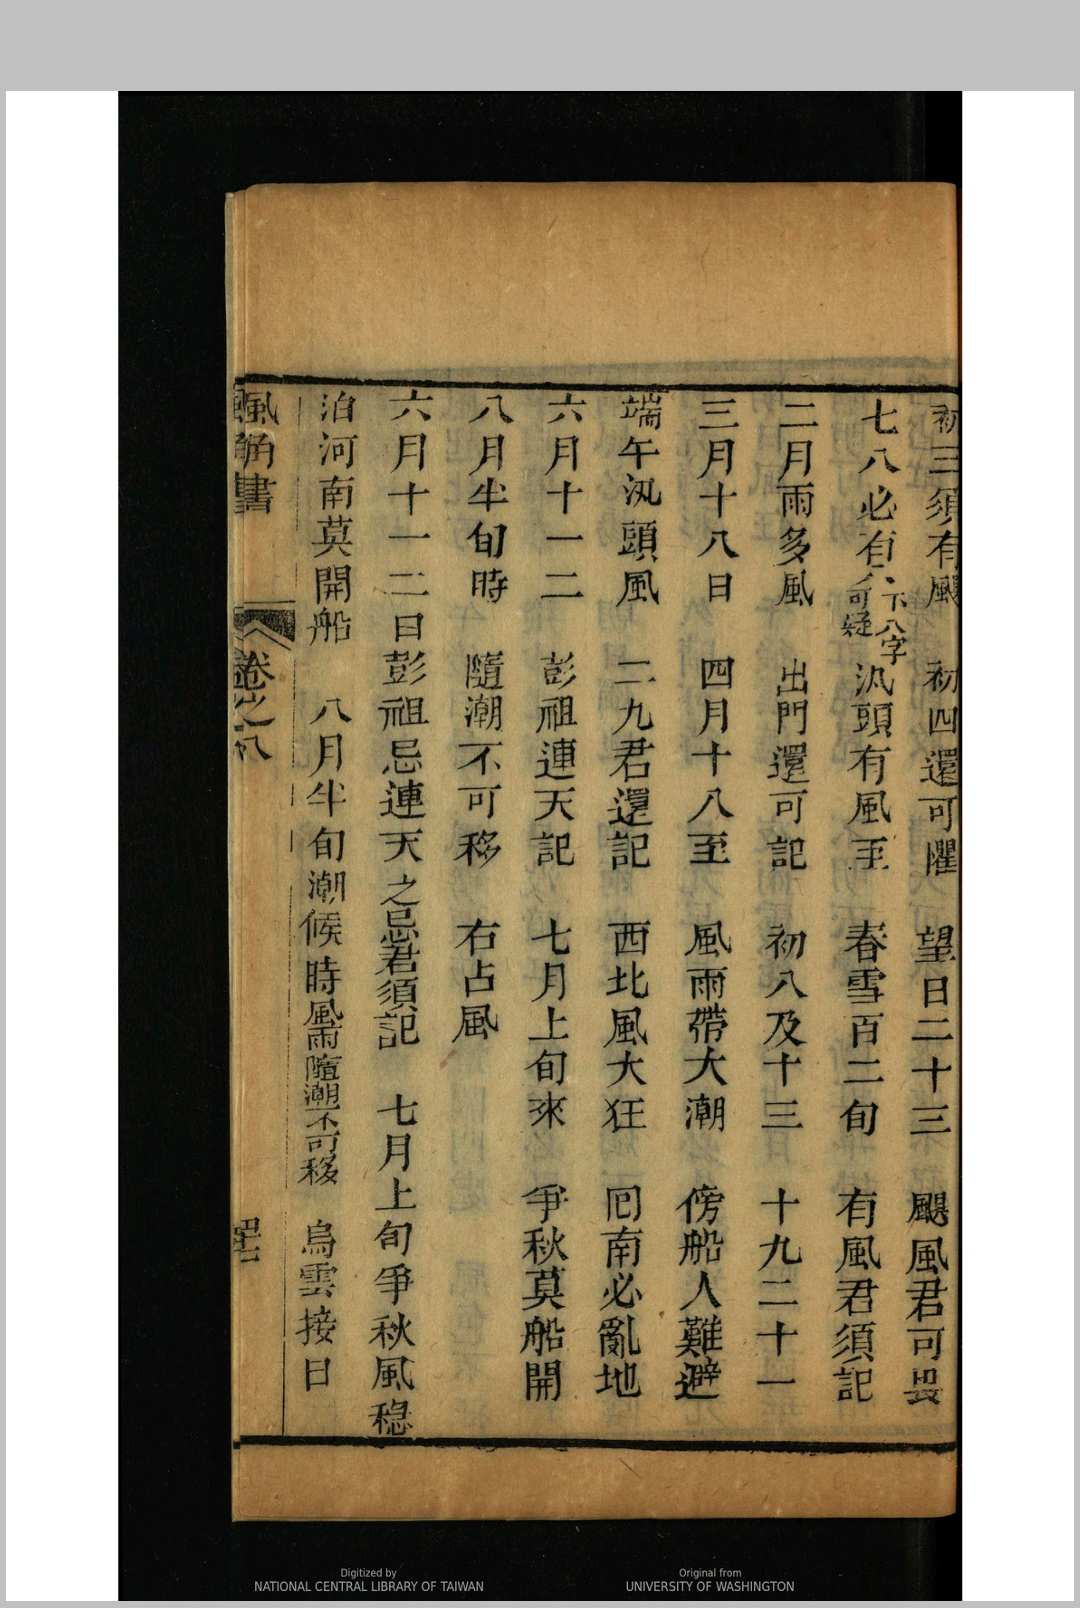 初三須有颶　初四還可懼　望日二十三　颶風君可畏
七八必有下八字可疑　汛頭有風至　春雪百二旬　有風君須記
二月雨多風　出門還可記　初八及十三　十九二十一
三月十八日　四月十八至　風雨帶大潮　傍船人難避
端午汛頭風　二九君還記　西北風大狂　回南必亂地
六月十一二　彭祖連天記　七月上旬來　爭秋莫船開
八月半旬時　隨潮不可移　右占風
六月十一二日彭祖忌連天之忌君須記　七月上旬爭秋風穩
泊河南莫開船　八月半旬潮候時風雨隨潮不可移　烏雲接日
風角書　卷之八　四七
Digitized by
NATIONAL CENTRAL LIBRARY OF TAIWAN
Original from
UNIVERSITY OF WASHINGTON